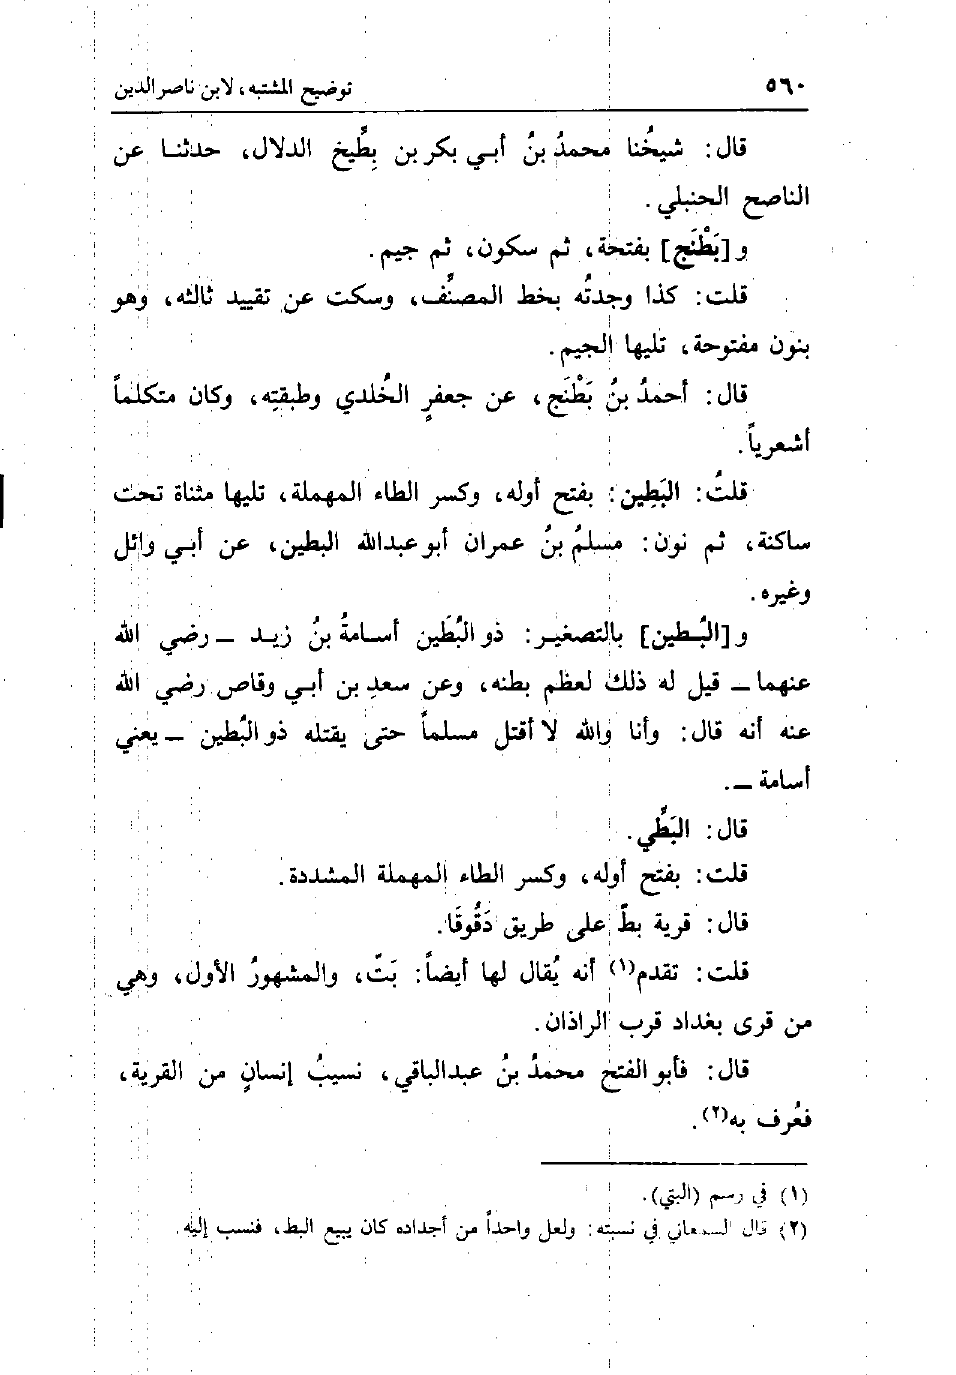 ٥٦٠
توضيح المشتبه، لابن ناصر الدين
قال: شيخُنا محمدُ بنُ أبي بكر بن بِطِّيخ الدلال، حدثنا عن
الناصح الحنبلي.
و [بَطْنَج] بفتحة، ثم سكون، ثم جيم.
قلت: كذا وجدتُه بخط المصنِّف، وسكت عن تقييد ثالثه، وهو
بنون مفتوحة، تليها الجيم.
قال: أحمدُ بنُ بَطْنَج، عن جعفرٍ الخُلدي وطبقتِه، وكان متكلماً
أشعرياً.
قلتُ: البَطِين: بفتح أوله، وكسر الطاء المهملة، تليها مثناة تحت
ساكنة، ثم نون: مسلمُ بنُ عمران أبو عبدالله البطين، عن أبي وائل
وغيره.
و [البُطين] بالتصغير: ذو البُطَين أسامةُ بنُ زيد ــ رضي الله
عنهما ــ قيل له ذلك لعظم بطنه، وعن سعدِ بن أبي وقاص رضي الله
عنه أنه قال: وأنا والله لا أقتل مسلماً حتى يقتله ذو البُطين ــ يعني
أسامة ــ.
قال: البَطِّي.
قلت: بفتح أوله، وكسر الطاء المهملة المشددة.
قال: قرية بطّ على طريق دَقُوقَا.
قلت: تقدم(١) أنه يُقال لها أيضاً: بَتّ، والمشهورُ الأول، وهي
من قرى بغداد قرب الراذان.
قال: فأبو الفتح محمدُ بنُ عبدالباقي، نسيبُ إنسانٍ من القرية،
فعُرف به(٢).
(١) في رسم (البتي).
(٢) قال السمعاني في نسبته: ولعل واحداً من أجداده كان يبيع البط، فنسب إليه.